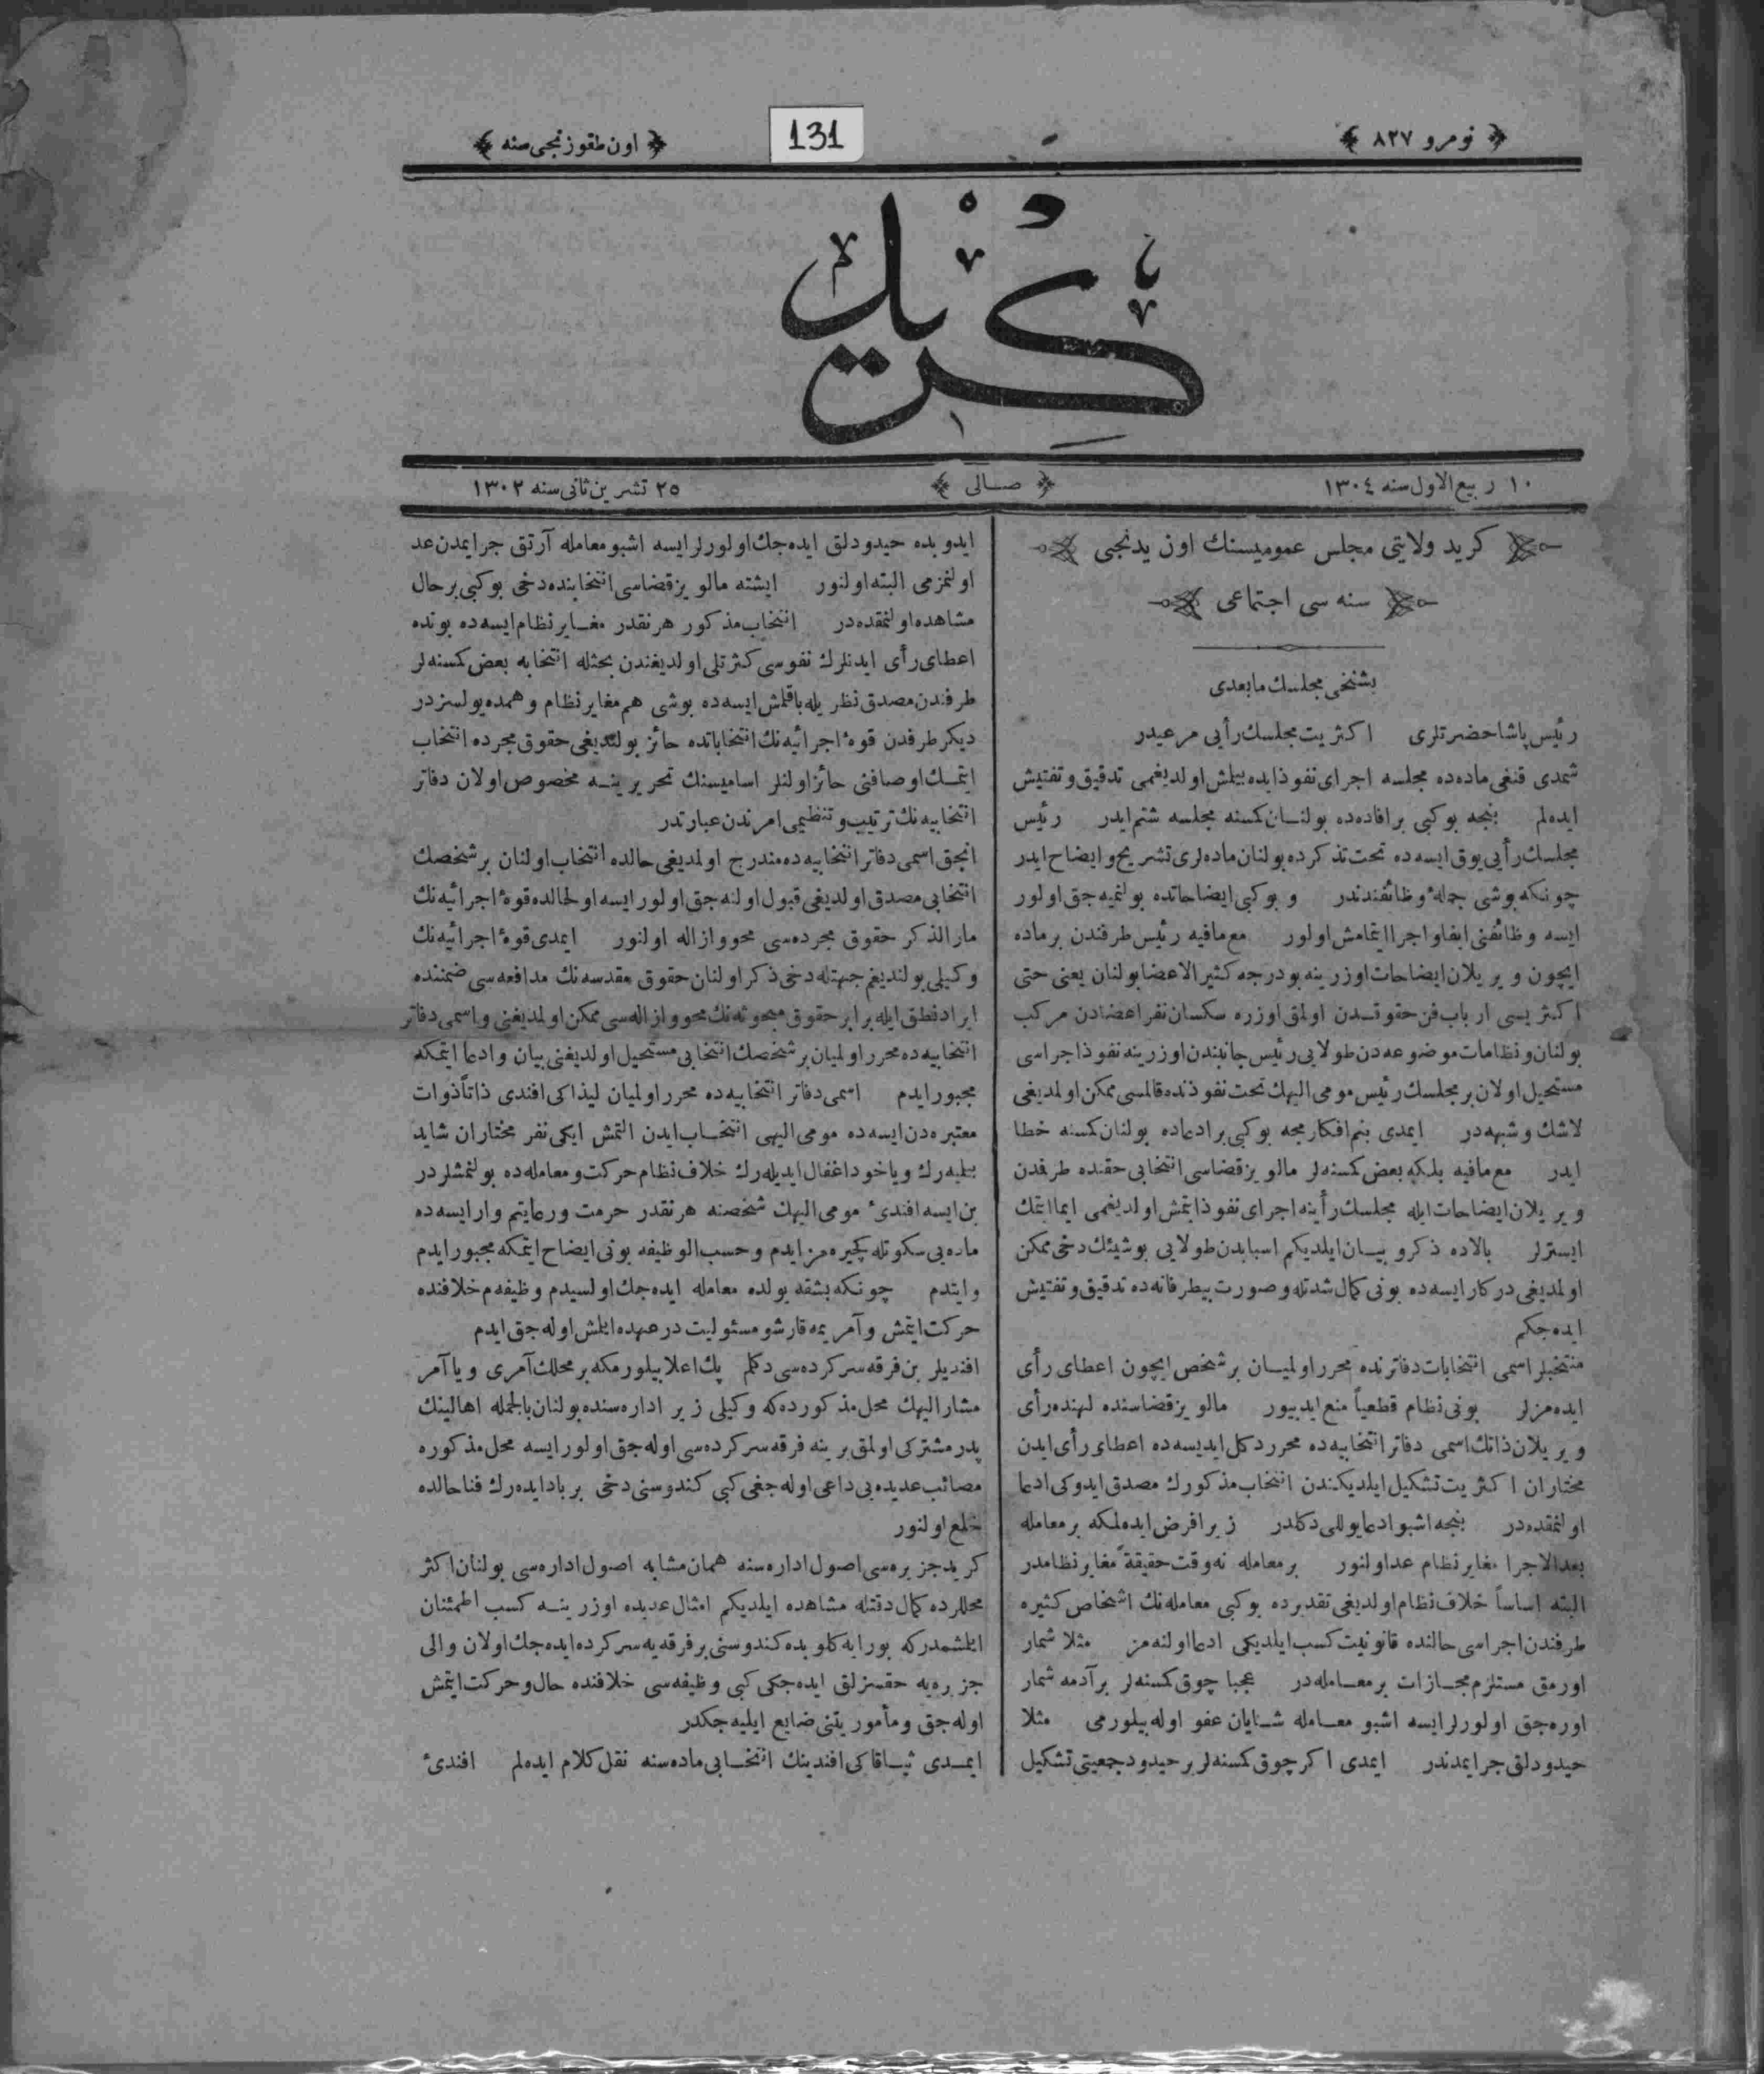 نومرو ٨٢٧
131
اون طقوزنجی سنه
كريد
١٠ ربيع الاول سنه ١٣٠٤
صالی
٢٥ تشرين ثانی سنه ١٣٠٢
كريد ولايتی مجلس عموميسنك اون يدنجی
سنه سی اجتماعی
بشنجی مجلسك مابعدی
رئيس پاشا حضرتلری اكثريت مجلسك رأیی مرعيدر
شمدی قنغی ماده ده مجلسه اجرای نفوذ ايده بيلمش اولديغمی تدقيق وتفتيش
ايده لم بنجه بوكبی برافاده ده بولنان كمسنه مجلسه شتم ايدر رئيس
مجلسك رأیی يوق ايسه ده تحت تذكرده بولنان ماده لری تشريح وايضاح ايدر
چونكه بوشی جملۀ وظائفندندر وبوكبی ايضاحاتده بولنميه جق اولور
ايسه وظائفنی ايفا واجرا ايتمامش اولور مع مافيه رئيس طرفندن برماده
ايچون ويريلان ايضاحات اوزرينه بو درجه كثير الاعضا بولنان يعنی حتی
اكثريسی ارباب فن حقوقدن اولمق اوزره سكسان نفر اعضادن مركب
بولنان ونظامات موضوعه دن طولایی رئيس جانبندن اوزرينه نفوذ اجراسی
مستحيل اولان بر مجلسك رئيس مومی اليهك تحت نفوذنده قالمسی ممكن اولمديغی
لاشك وشبهه در ايمدی بنم افكارمجه بوكبی برادعاده بولنان كمسنه خطا
ايدر مع مافيه بلكه بعض كمسنه لر مالويز قضاسی انتخابی حقنده طرفدن
ويريلان ايضاحات ايله مجلسك رأينه اجرای نفوذ ايتمش اولديغمی ايما ايتمك
ايسترلر بالاده ذكر وبيان ايلديكم اسبابدن طولایی بوشيئك دخی ممكن
اولمديغی دركار ايسه ده بونی كمال شدتله وصورت بيطرفانه ده تدقيق وتفتيش
ايده جكم
منتخبلر اسمی انتخابات دفاترنده محرر اولميان بر شخص ايچون اعطای رأی
ايده مزلر بونی نظام قطعياً منع ايدييور مالويز قضاسنده لهنده رأی
ويريلان ذاتك اسمی دفاتر انتخابيه ده محرر دكل ايديسه ده اعطای رأی ايدن
مختاران اكثريت تشكيل ايلديكندن انتخاب مذكورك مصدق ايدوكی ادعا
اولنمقده در بنجه اشبو ادعا يوللی دكلدر زيرا فرض ايده لمكه بر معامله
بعد الاجرا مغاير نظام عد اولنور بر معامله نه وقت حقيقةً مغاير نظامدر
البته اساساً خلاف نظام اولديغی تقديرده بوكبی معامله نك اشخاص كثيره
طرفندن اجراسی حالنده قانونيت كسب ايلديكی ادعا اولنه مز مثلا شمار
اورمق مستلزم مجازات بر معامله در عجبا چوق كمسنه لر برآدمه شمار
اوره جق اولورلر ايسه اشبو معامله شايان عفو اوله بيلورمی مثلا
حيدودلق جرايمدندر ايمدی اكر چوق كمسنه لر بر حيدود جمعيتی تشكيل
ايدوبده حيدودلق ايده جك اولورلر ايسه اشبو معامله آرتق جرايمدن عد
اولنمزمی البته اولنور ايشته مالويز قضاسی انتخابنده دخی بوكبی بر حال
مشاهده اولنمقده در انتخاب مذكور هر نقدر مغاير نظام ايسه ده بونده
اعطای رأی ايدنلرك نفوسی كثرتلی اولديغندن بحثله انتخابه بعض كمسنه لر
طرفندن مصدق نظريله باقلمش ايسه ده بوشی هم مغاير نظام وهمده يولسزدر
ديكر طرفدن قوۀ اجرائيه نك انتخاباتده حائز بولنديغی حقوق مجرده انتخاب
ايتمك اوصافنی حائز اولنلر اساميسنك تحريرينه مخصوص اولان دفاتر
انتخابيه نك ترتيب وتنظيمی امرندن عبارتدر
انجق اسمی دفاتر انتخابيه ده مندرج اولمديغی حالده انتخاب اولنان بر شخصك
انتخابی مصدق اولديغی قبول اولنه جق اولور ايسه اولحالده قوۀ اجرائيه نك
مار الذكر حقوق مجرده سی محو وازاله اولنور ايمدی قوۀ اجرائيه نك
وكيلی بولنديغم جهتله دخی ذكر اولنان حقوق مقدسه نك مدافعه سی ضمننده
ايراد نطق ايله برابر حقوق مبحوثه نك محو وازاله سی ممكن اولمديغنی واسمی دفاتر
انتخابيه ده محرر اولميان بر شخصك انتخابی مستحيل اولديغنی بيان وادعا ايتمكه
مجبور ايدم اسمی دفاتر انتخابيه ده محرر اولميان ليذاكی افندی ذاتاً ذوات
معتبره دن ايسه ده مومی اليهی انتخاب ايدن التمش ايكی نفر مختاران شايد
بيلميه رك وياخود اغفال ايديله رك خلاف نظام حركت ومعامله ده بولنمشلردر
بن ايسه افندیء مومی اليهك شخصنه هر نقدر حرمت ورعايتم وار ايسه ده
ماده يی سكوتله كچيره مز ايدم وحسب الوظيفه بونی ايضاح ايتمكه مجبور ايدم
وايتدم چونكه بشقه يولده معامله ايده جك اولسيدم وظيفه م خلافنده
حركت ايتمش وآمريمه قارشو مسئوليت درعهده ايلمش اوله جق ايدم
افنديلر بن فرقه سركرده سی دكلم پك اعلا بيلورمكه بر محلك آمری ويا آمر
مشار اليهك محل مذكورده كه وكيلی زير اداره سنده بولنان بالجمله اهالينك
پدر مشتركی اولمق يرينه فرقه سركرده سی اوله جق اولور ايسه محل مذكوره
مصائب عديده يی داعی اوله جغی كبی كندوسنی دخی برباد ايده رك فنا حالده
خلع اولنور
كريد جزيره سی اصول اداره سنه همان مشابه اصول اداره سی بولنان اكثر
محللرده كمال دقتله مشاهده ايلديكم امثال عديده اوزرينه كسب اطمئنان
ايلشمدركه بورايه كلوبده كندوسنی بر فرقه يه سركرده ايده جك اولان والی
جزيره يه حقسزلق ايده جكی كبی وظيفه سی خلافنده حال وحركت ايتمش
اوله جق ومأموريتنی ضايع ايليه جكدر
ايمدی افندينك انتخابی ماده سنه نقل كلام ايده لم افندیء